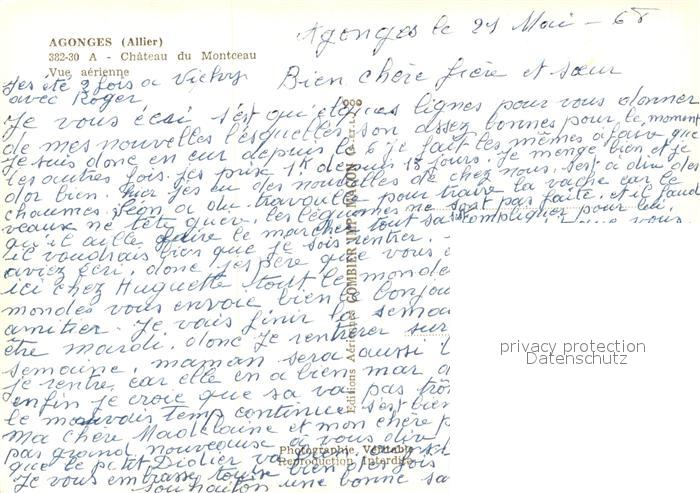 AGONGES (Allier)
382-30 A - Château du Montceau
Vue aérienne
Agonges le 21 Mai - 68
Bien chère frère et sœur
j'es été 2 fois a Vichy
avec Roger
Je vous écri s'est qu'élques lignes pour vous donner
de mes nouvelles l'esquelles son assez bonnes pour le moment
je suis donc en cur depuis le 6 je fait les mêmes a faire que
les autres fois. j'es pris 1K depuis 15 jours. je menge bien et je
dor bien. Hier j'es eu des nouvelles de chez nous. s'est a dire des
chaumes. Léon a du travaille pour traire la vache car le
veaux ne tête guère. les légumes ne sont pas faite, et il faud
qu'il aille faire le marcher tout sa compliquer pour lui,
il voudrais bien que je sois rentrer. - que vous
aviez écri, donc j'espère que vous
ici chez Huguette tout le monde
mondes vous envoie bien le bonjou
amitier. Je vais finir la semai
être mardi. donc je rentrerer sur
semaine, maman sera aussi
je rentre car elle en a bien mar
enfin je croie que sa va pas trô
le mauvais temp continue s'est bien
Ma chère Madelaine et mon chère
pas grand nouveaux a vous dire
que le petit Didier va bien
Je vous embrasse tous bien fois
souhaiton une bonne sa
Editions Aériennes COMBIER IMP. MACON
Photographie Véritable
Reproduction Interdite
privacy protection
Datenschutz